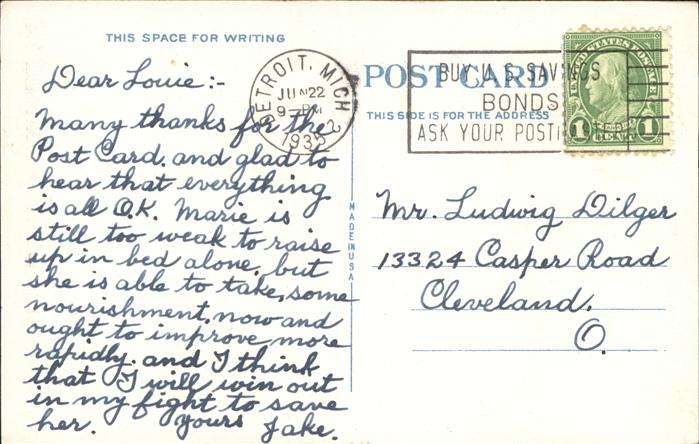 THIS SPACE FOR WRITING
Dear Louie:-
Many thanks for the
Post Card. and glad to
hear that everything
is all O.K. Marie is
still too weak to raise
up in bed alone, but
she is able to take, some
nourishment, now and
ought to improve more
rapidly. and I think
that I will win out
in my fight to save
her. Yours Jake.
DETROIT, MICH
JUN 22
9-PM
1935
2
MADE IN USA
POST CARD
THIS SIDE IS FOR THE ADDRESS
BUY U.S. SAVINGS
BONDS
ASK YOUR
UNITED STATES POSTAGE
1 CENT 1
Mr. Ludwig Dilger
13324 Casper Road
Cleveland.
O.